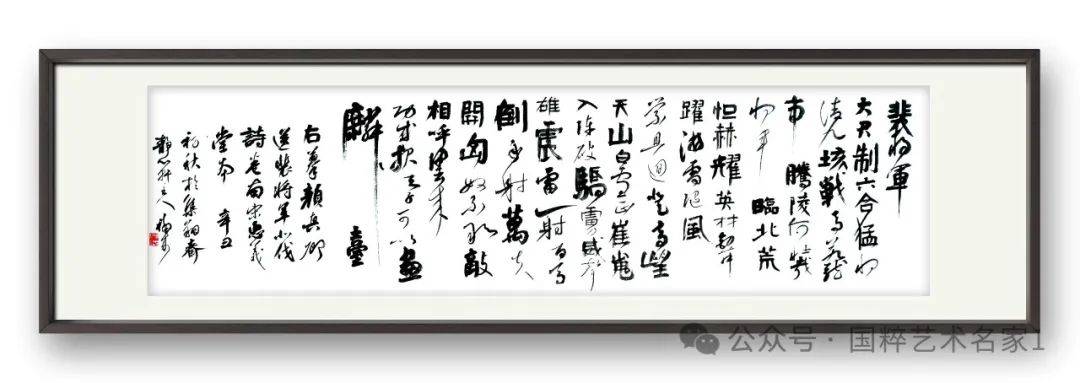 裴將軍
大君制六合猛將
清九垓戰馬若龍
虎騰陵何壯哉
將軍臨北荒
恒赫耀英材劍舞
躍游電隨風
縈且迴登高望
天山白雪正崔嵬
入陣破驕虜威聲
雄震雷一射百馬
倒再射萬夫
開匈奴不敢敵
相呼歸去來
功成報天子可以畫
麟臺
右摹顏真卿
送裴將軍北伐
詩卷南宋忠義
堂本 辛丑
初秋於集翔齋
軒主人
公众号·国粹艺术名家1